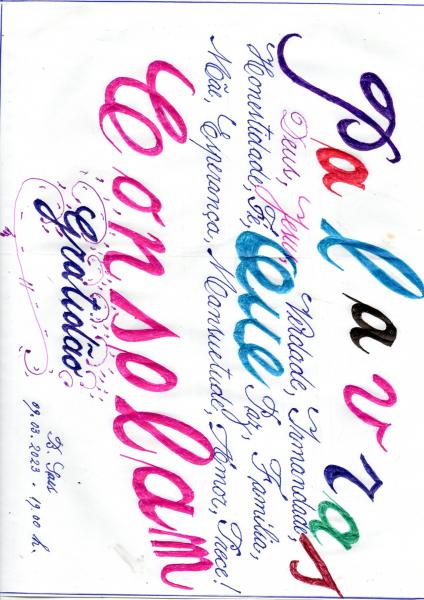 Palavras
Deus, Jesus, Verdade, Irmandade,
Honestidade, Fé, que Paz, Família,
Mãe, Esperança, Mansuetude, Amor, Prece!
Consolam
Gratidão
09.03.2023 - 19,00 h.